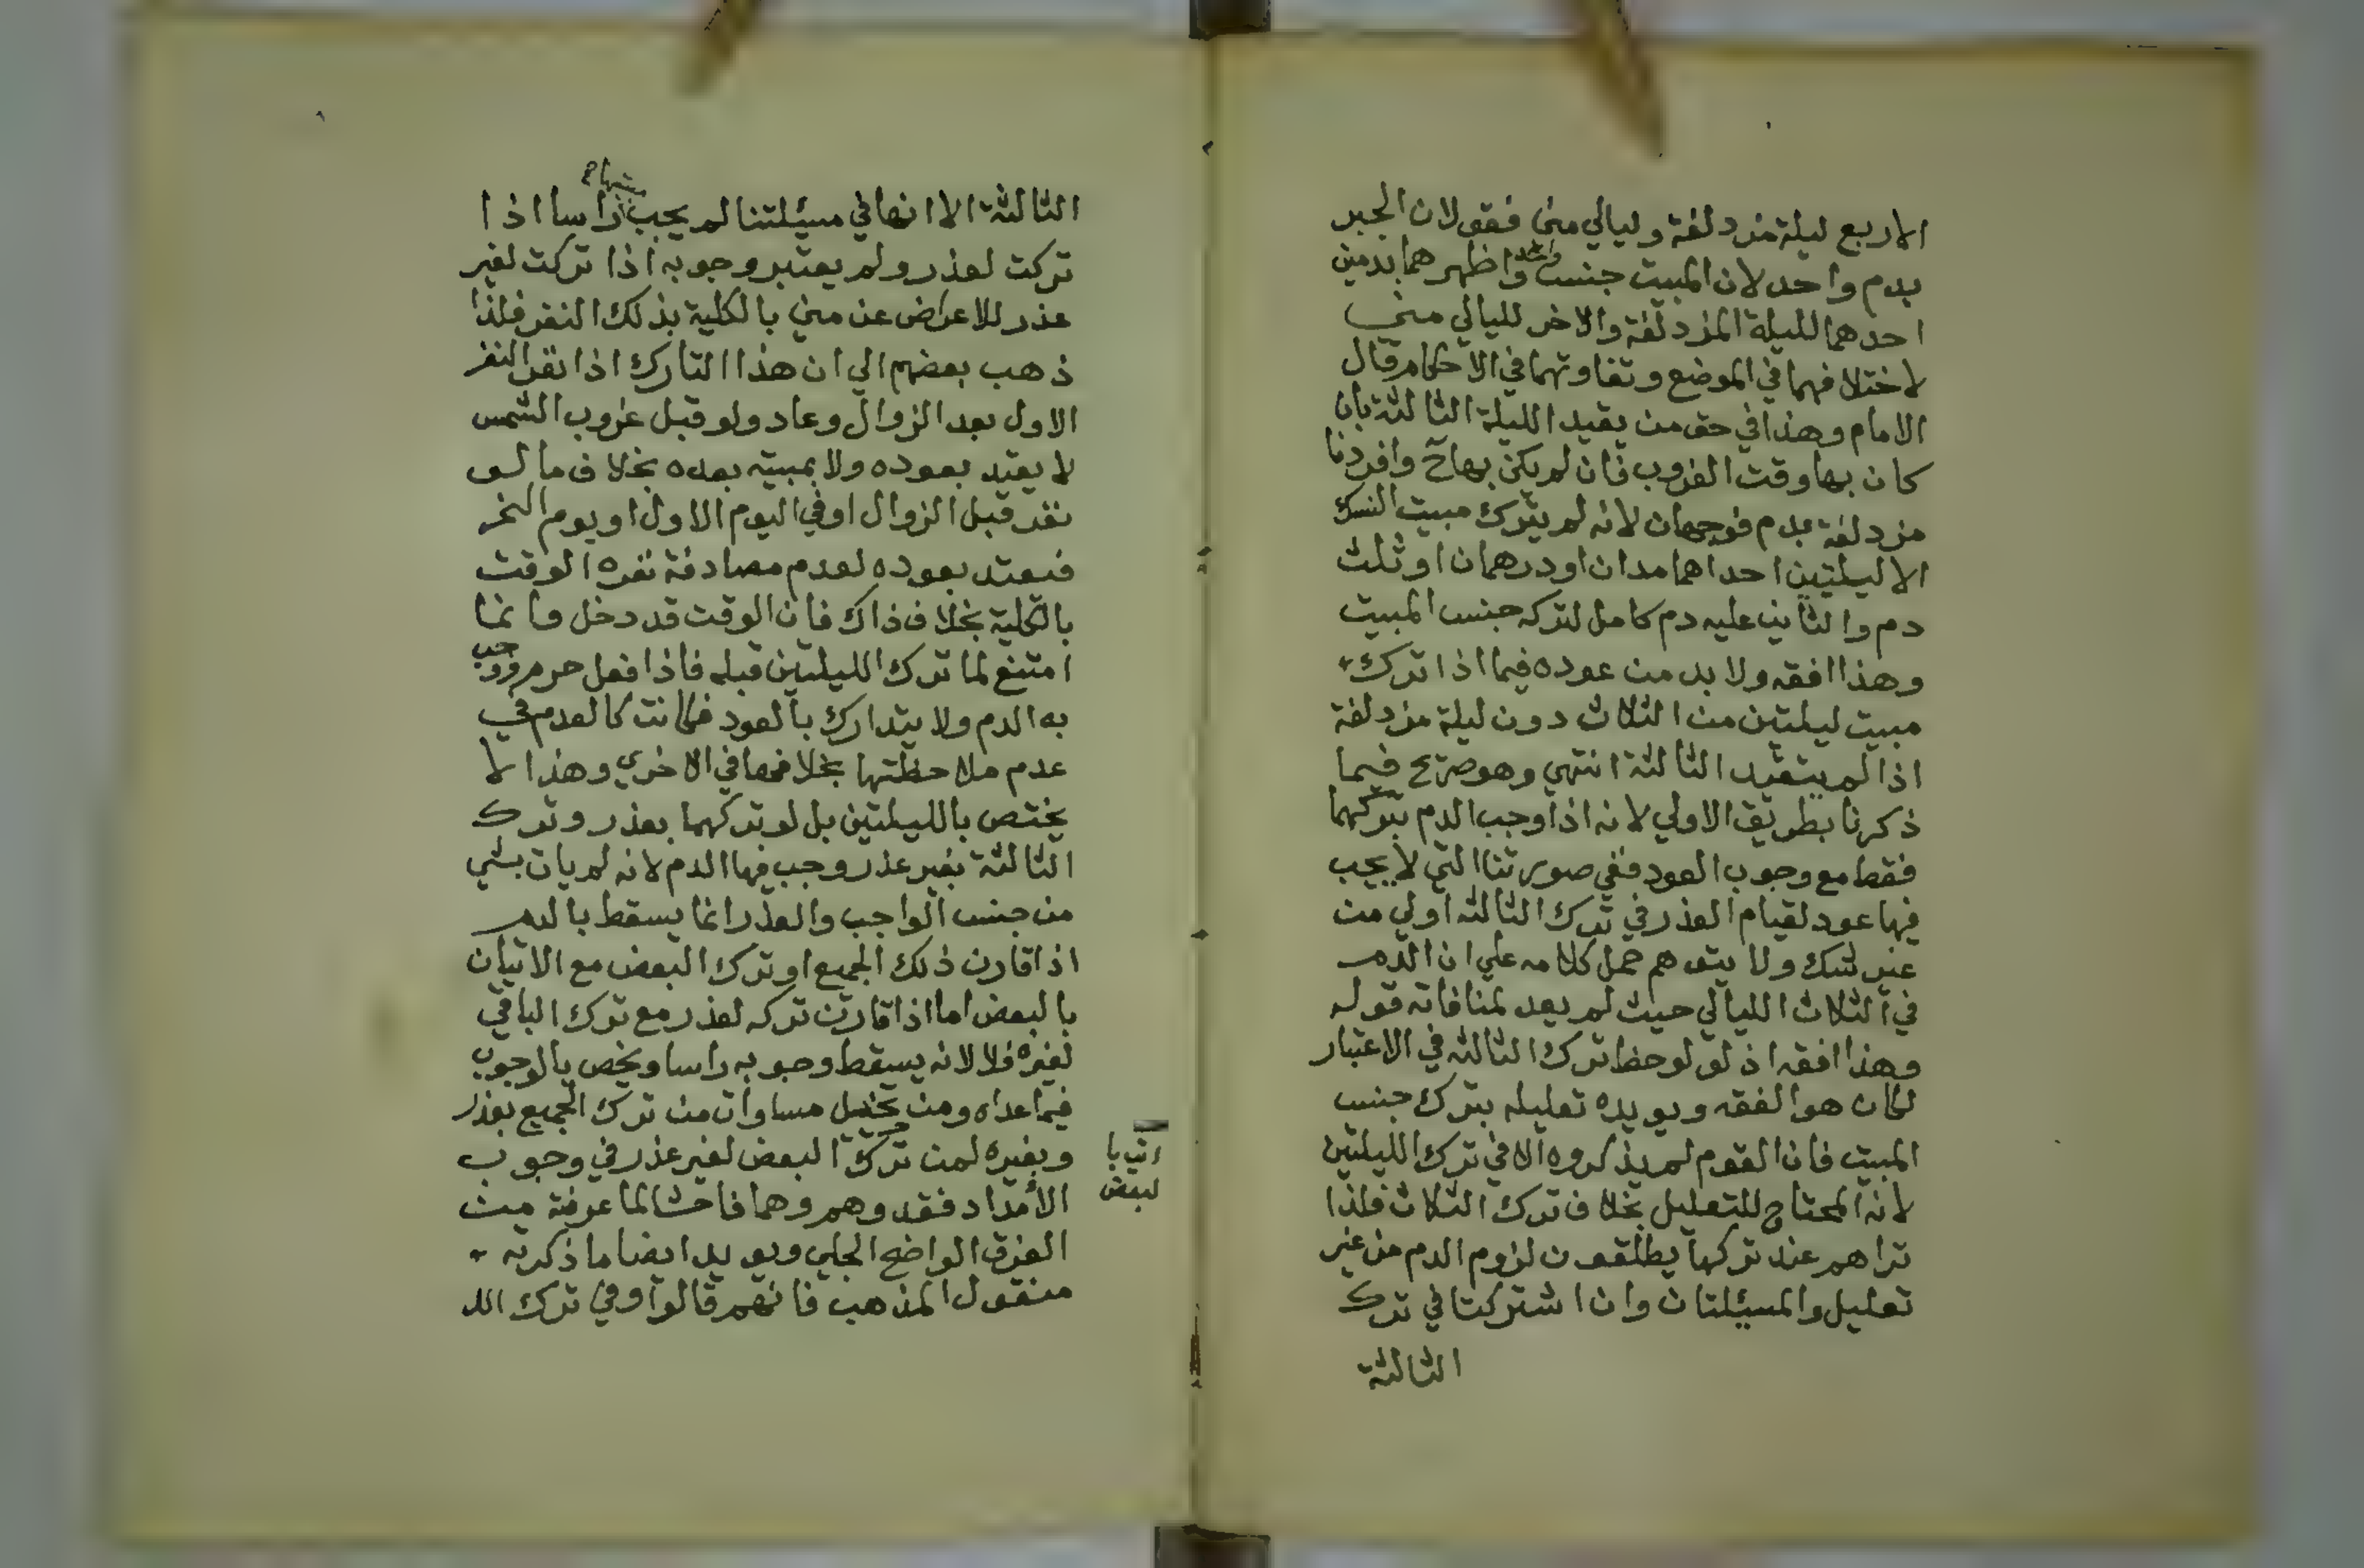 الاربع ليلة مزدلفة وليالي منى فقولان الجبر
بدم واحد لان المبيت جنس واحد واظهرهما بدمين
احدهما لليلة المزدلفة والاخر لليالي منى
لاختلافهما في الموضع وتفاوتهما في الاحكام قال
الامام وهذا في حق من يقيد الليلة الثالثة بان
كان بها وقت الغروب فان لم يكن بها ح وافردنا
مزدلفة بدم فوجهان لانه لم يترك مبيت النسك
الا ليلتين احداهما مدان او درهمان او ثلث
دم والثاني عليه دم كامل لتركه جنس المبيت
وهذا افقه ولا بد من عوده فيما اذا ترك
مبيت ليلتين من الثلاث دون ليلة مزدلفة
اذا لم يتقيد الثالثة انتهي وهو صريح فيما
ذكرنا بطريق الاولي لانه اذا وجب الدم بتركهما
فقط مع وجوب العود ففي صورتنا التي لا يجب
فيها عود لقيام العذر في ترك الثالثه اولي من
غير شك ولا يتوهم حمل كلامه علي ان الدم
في الثلاث الليالي حيث لم يعد لمنافاته قوله
وهذا افقه اذ لو لوحظ ترك الثالثه في الاعتبار
لكان هو الفقه ويويده تعليله بترك جنس
المبيت فان القوم لم يذكروه الا في ترك الليلتين
لانه المحتاج للتعليل بخلاف ترك الثلاث فلذا
تراهم عند تركها يطلقون لزوم الدم من غير
تعليل والمسئلتان وان اشتركتا في ترك
الثالثة
الثالثة الا انها في مسئلتنا لم يجب مبيتها راسا اذا
تركت لعذر ولم يعتبر وجوبه اذا تركت لغير
عذر للاعراض عن مني بالكلية بذلك النفر فلذا
ذهب بعضهم الي ان هذا التارك اذا نفر النفر
الاول بعد الزوال وعاد ولو قبل غروب الشمس
لا يعتد بعوده ولا بمبيته بعده بخلاف ما لو
نفر قبل الزوال او في اليوم الاول او يوم النحر
فيعتد بعوده لعدم مصادفة نفره الوقت
بالكلية بخلاف ذاك فان الوقت قد دخل وانما
امتنع لما ترك الليلتين قبله فاذا فعل حرم ووجب
به الدم ولا يتدارك بالعود فكانت كالعدم في
عدم ملاحظتها بخلافها في الاخري وهذا لا
يختص بالليلتين بل لو تركهما بعذر وترك
الثالثة بغير عذر وجب فيها الدم لانه لم يات بشي
من جنس الواجب والعذر انما يسقط بالدم
اذا قارن ذلك الجميع او ترك البعض مع الاتيان
بالبعض اما اذا قارن تركه لعذر مع ترك الباقي
لغيره فلا لانه يسقط وجوبه راسا ويخص بالوجوب
فيما عداه ومن تخيل مساوات من ترك الجميع بعذر
وبغيره لمن ترك البعض لغير عذر في وجوب
اتيا با
لبعض
الأمداد فقد وهم وهما فاحشا لما عرفته من
الفرق الواضح الجلي ويويد ايضا ما ذكرته
منقول المذهب فانهم قالوا وفي ترك الد